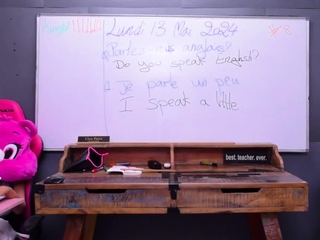 Lundi 13 Mai 2024
Parlez vous anglais?
Do you speak English?
Je parle un peu
I speak a little
best. teacher. ever.